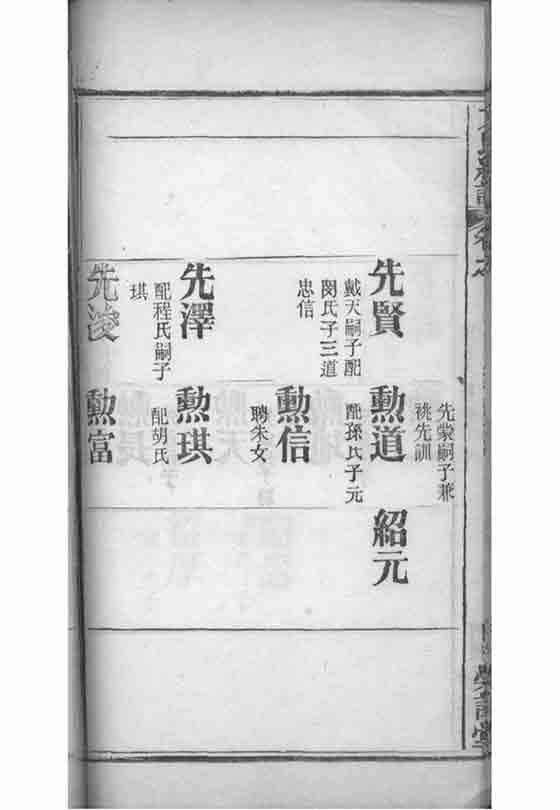 先蒙嗣子兼
祧先訓
先賢
戴天嗣子配
閔氏子三道
忠信
勲道
配孫氏子元
紹元
勲信
聘朱女
先澤
配程氏嗣子
琪
勲琪
配胡氏
先淩
勲富